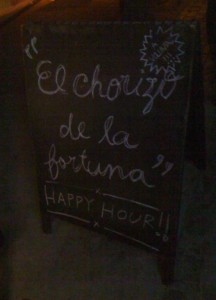 "El chorizo
de la
fortuna"
HAPPY HOUR!!